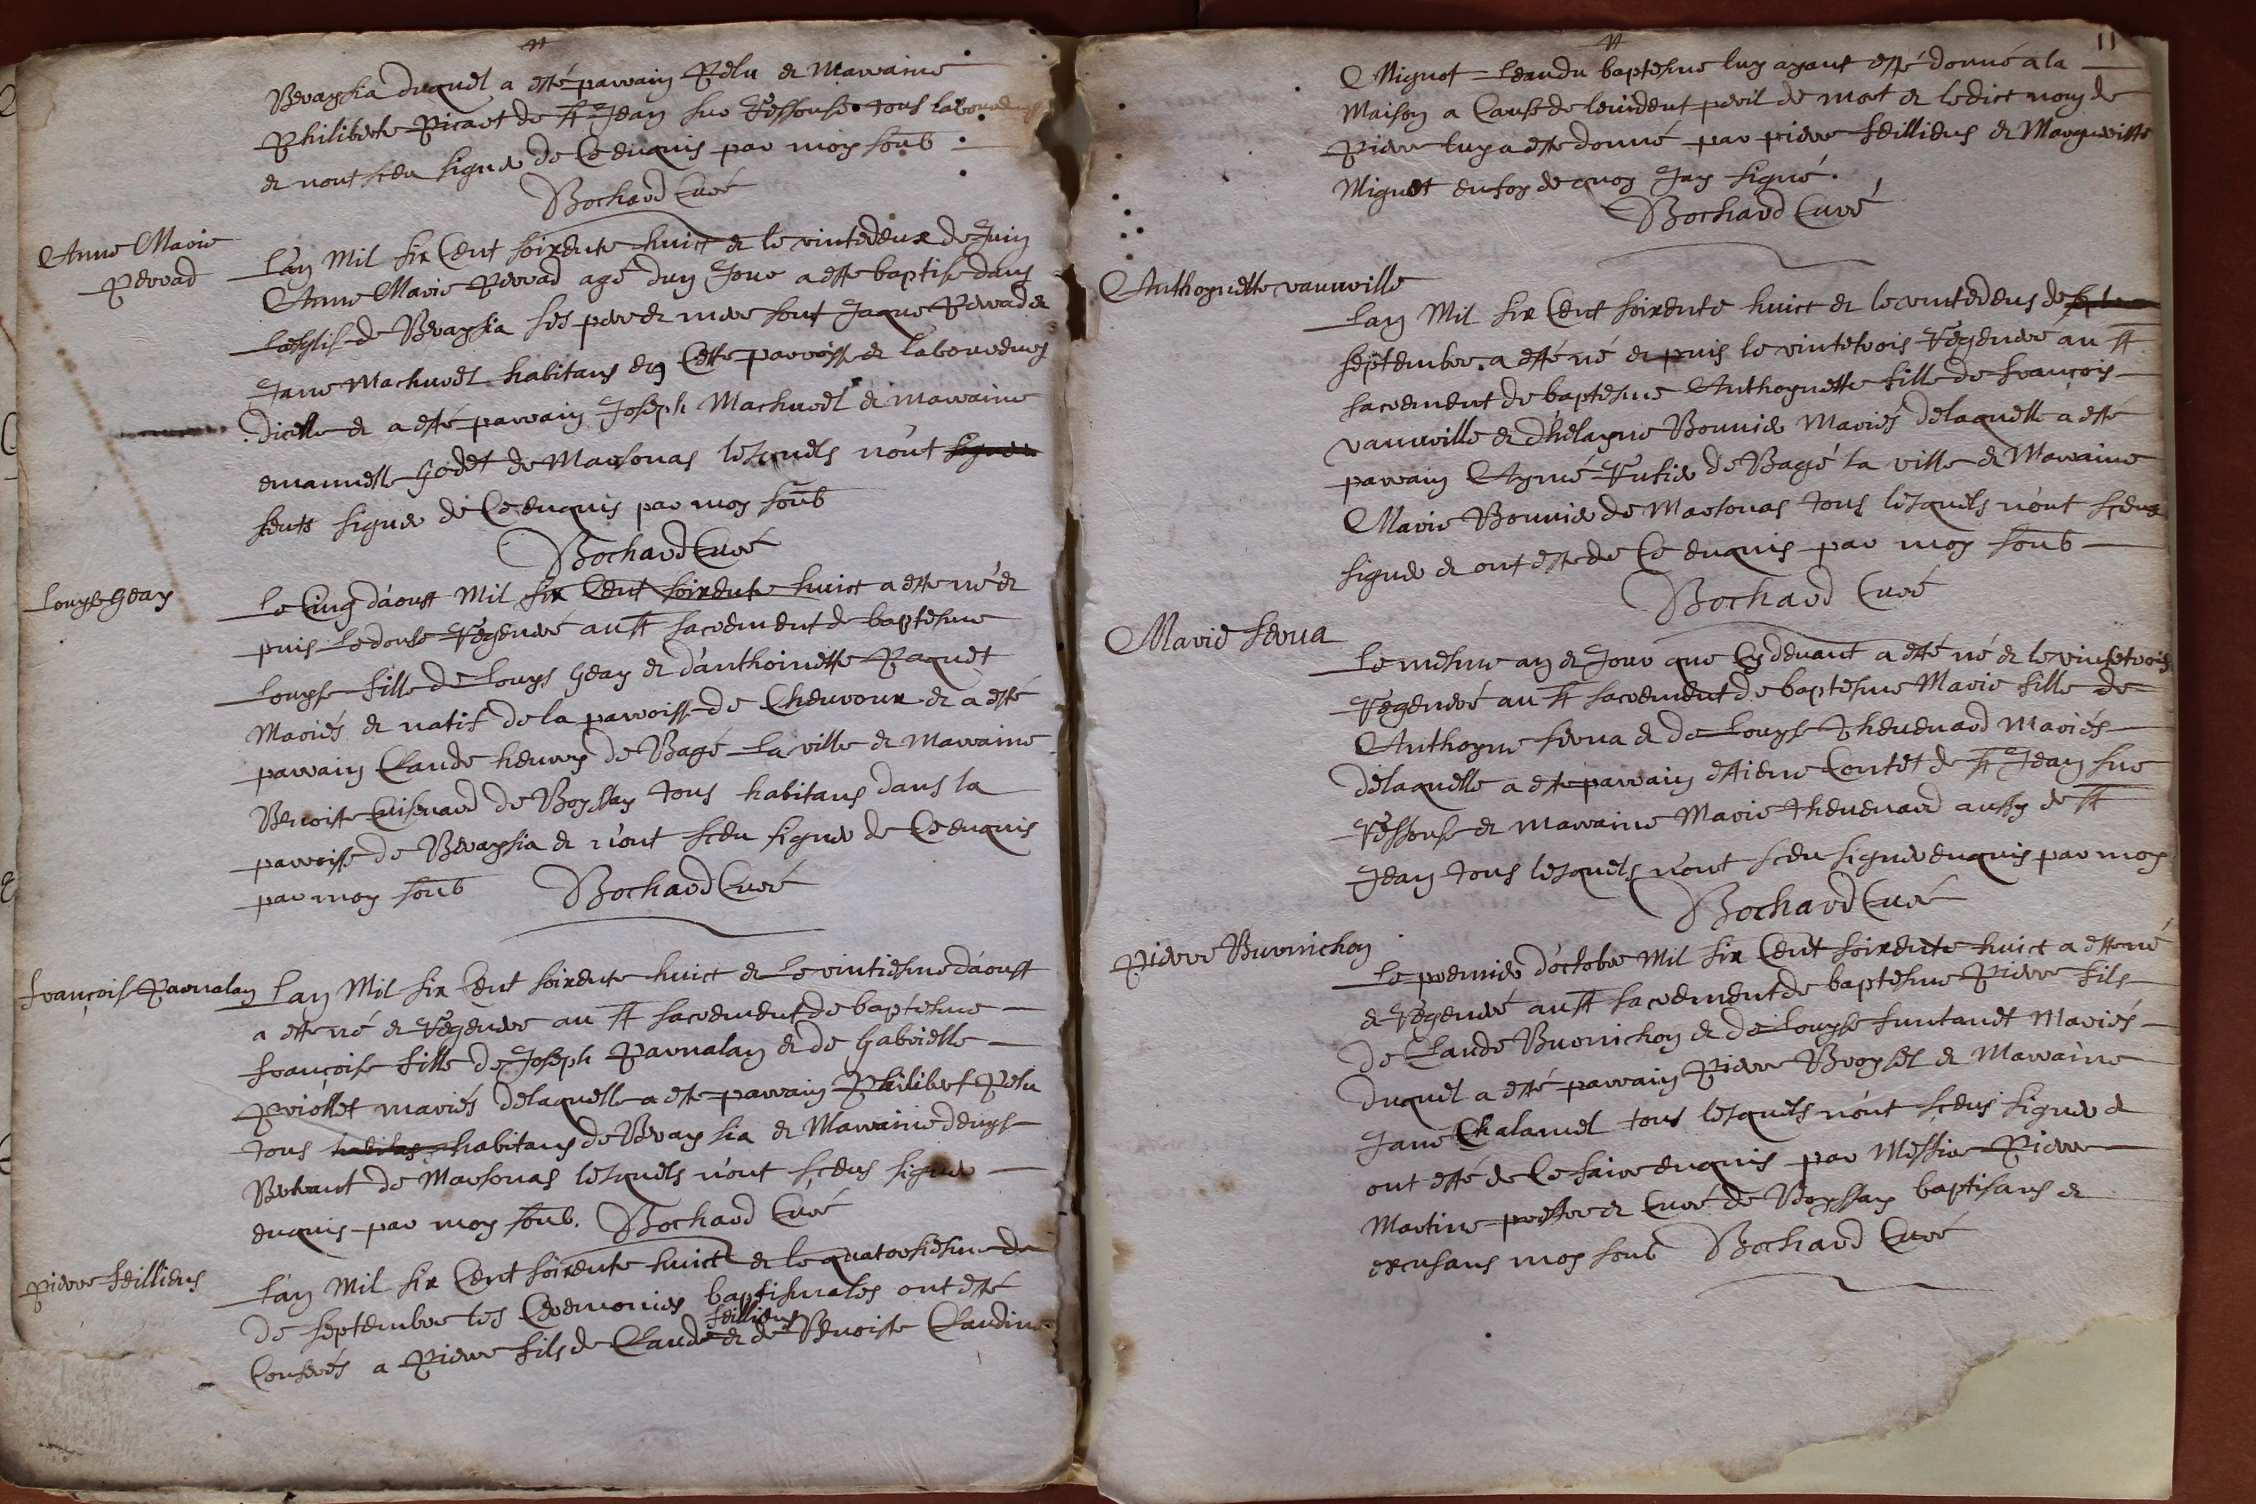 Bevaysia duquel a esté parrain Pelu et Marraine
Philiberte Picart de St Jean sur Ressouse tous laboureurs
et nont sceu signer de ce enquis par moy soub
Bochard Curé
Anne Marie
Perrad
L'an Mil six Cent soixente huict et le vintedeux de Juin
Anne Marie Perrad agé dun Jour a esté baptisé dans
L'esglise de Bevaysia ses pere et mere sont Jaque Perrad et
Jane Machurel habitans en Cette parroisse et laboureurs
dicelle et a esté parrain Joseph Machurel et marraine
emanuelle Godet de Marsonas lesquels n'ont signer
seuts signer de Ce enquis par moy soub
Bochard Curé
Louyse Geay
Le Cinq d'aoust Mil six Cent soixente huict a esté né et
puis Ledouse Regeneré au St sacrement de baptesme
Louyse fille de Louys Geay et d'anthoinette Paquet
Mariés et natif de la parroisse de Chevroux et a esté
parrain Claude henry de Bagé La ville et Marraine
Benoiste Cuisenard de Boyssay tous habitans dans la
parroisse de Bevaysia et n'ont sceu signer de Ce enquis
par moy soub Bochard Curé
françoise Parnalan
L'an Mil six Cent soixente huict et Le vintiesme d'aoust
a esté né et Regeneré au St sacrement de baptesme
françoise fille de Joseph Parnalan et de Gabrielle
Priollet mariés delaquelle a esté parrain Philibert Pelu
tous habitans habitans de Bevaysia et Marraine denyse
Bertrant de Marsonas lesquels n'ont sceus signer
enquis par moy soub. Bochard Curé
pierre feilliens
L'an Mil six Cent soixente huict et le quatorsiesme de
de septembre les Ceremonies baptismales ont esté
feilliens
Conferés a Pierre fils de Claude et de Benoiste Claudine
11
Mignot = leaudu baptesme luy ayant esté donné a la
Maison a Cause de levident peril de mort et ledict nom de
Pierre luy a esté donné par pierre feilliens et Marguerisse
Mignot en foy de quoy Jay signé.
Bochard Curé
Anthoynette vanuville
L'an Mil six Cent soixente huict et le vintedeus de
septembre a esté né et puis le vintetrois Regeneré au St
sacrement de baptesme Anthoynette fille de françois
vanuville et d'helayne Bonnier Mariés delaquelle a esté
parrain Aymé Rutier de Bagé la ville et Marraine
Marie Bonnier de Marsonas tous lesquels n'ont sceus
signer et ont esté de Ce enquis par moy soub
Bochard Curé
Marie ferna
Le mesme an et Jour que Cydevant a esté né et le vintetrois
Regeneré au St sacrement de baptesme Marie fille de
Anthoyne ferna et de Louyse Thevenard Mariés
delaquelle a esté parrain estiene Contet de St Jean sur
Ressouse et marraine Marie thevenard aussy de St
Jean tous lesquels n'ont sceu signer enquis par moy
Bochard Curé
Pierre Burnichon
Le premier d'octobre Mil six Cent soixente huict a esté né
et Regeneré au St sacrement de baptesme Pierre fils
de Claude Burnichon et de Louyse funtanet Mariés
duquel a esté parrain Pierre Broyset et Marraine
Jane Chalamel tous lesquels n'ont sceus signer et
ont esté de Ce faire enquis par Messire Pierre
Martine prestre et Curé de Boyssay baptisans et
excusans moy soub Bochard Curé